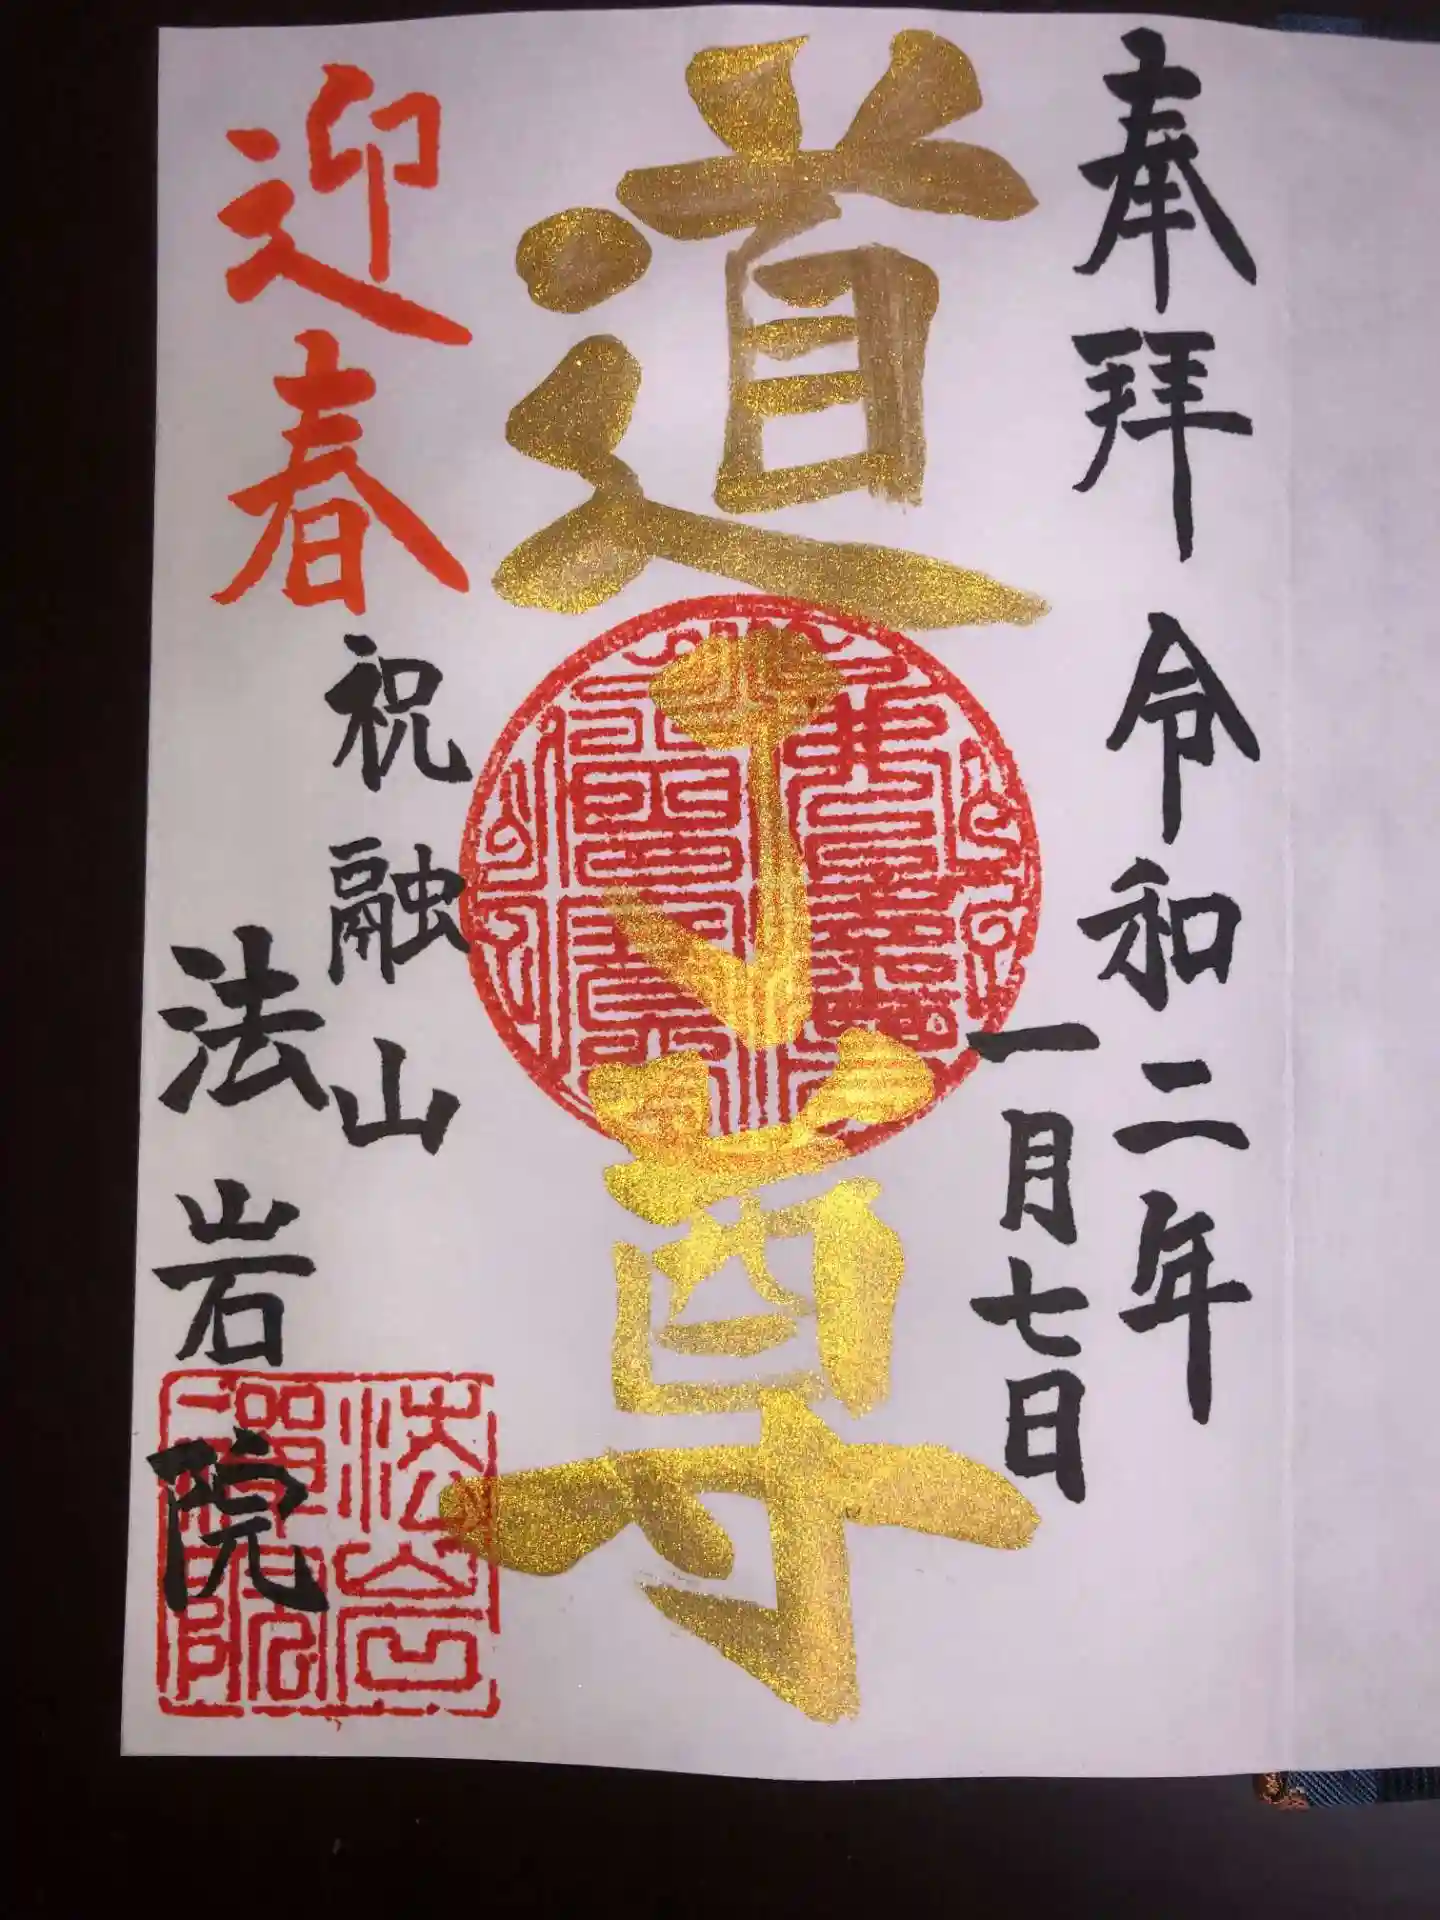 奉拜 令和二年
一月七日
道了尊
迎春
祝融山
法岩院
法岩禅院